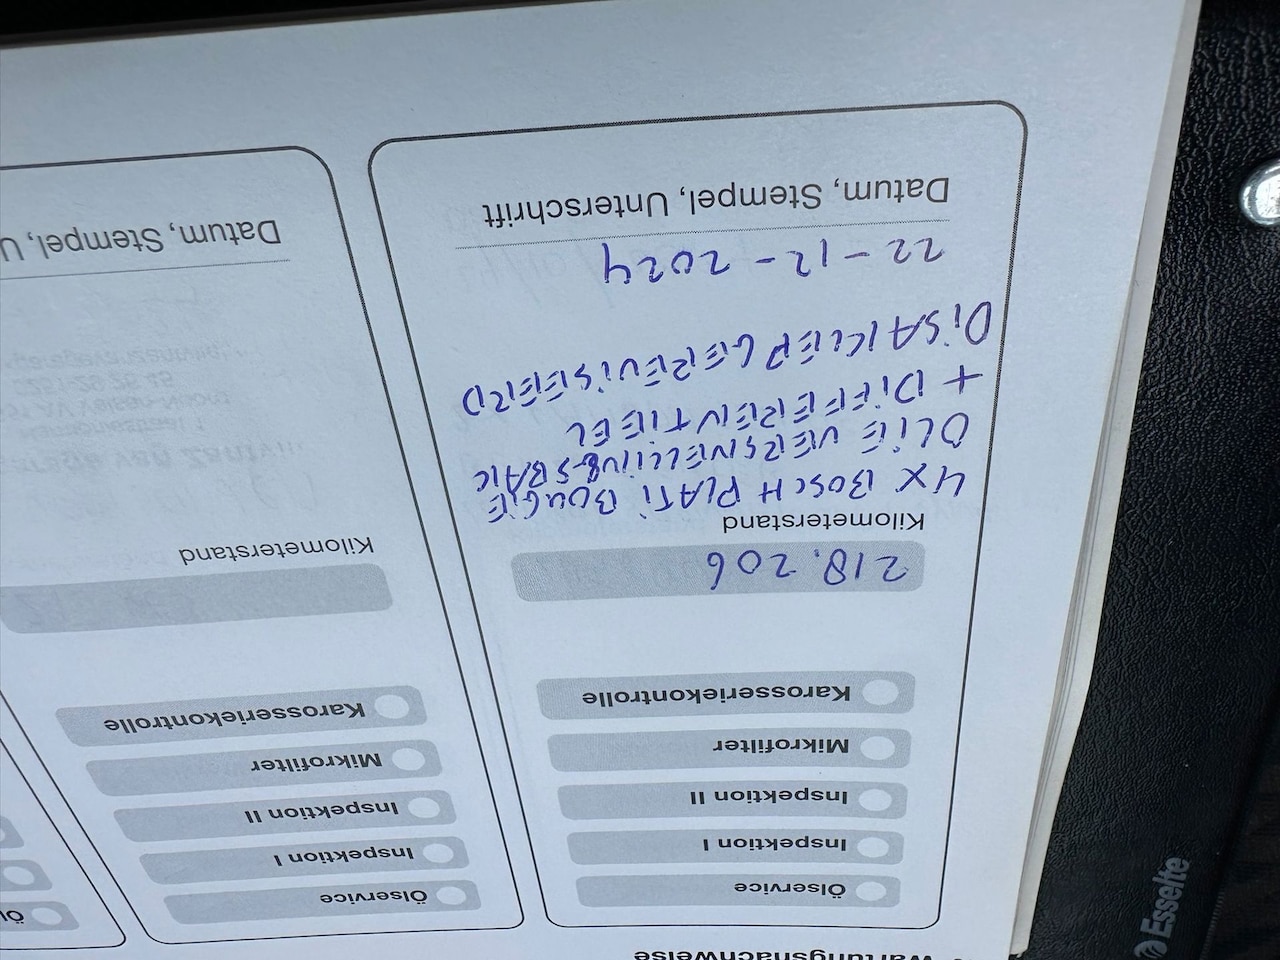 Wartungsnachweise
Ölservice
Inspektion I
Inspektion II
Mikrofilter
Karosseriekontrolle
218.206
Kilometerstand
4X BOSCH PLATI BOUGIE
OLIE VERSNELLINGSBAK
+ DIFFERENTIEEL
DISAKLEP GEREVISEERD
22-12-2024
Datum, Stempel, Unterschrift
Ölservice
Inspektion I
Inspektion II
Mikrofilter
Karosseriekontrolle
Kilometerstand
Datum, Stempel, U
Öl
Esselte